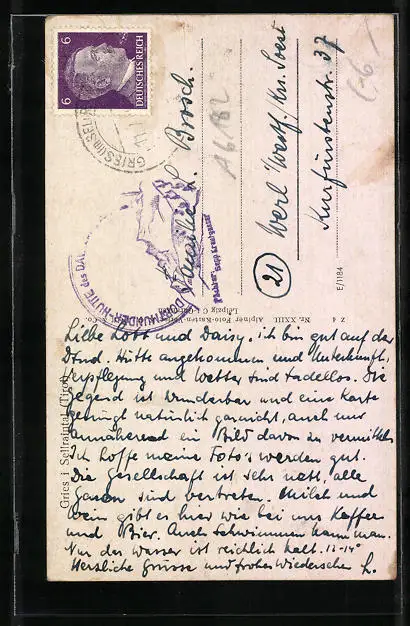 6 6
DEUTSCHES REICH
GRIES
Familie L. Brosch.
A6182
Werl Westf./Krs. Soest
Kurfürstenstr. 37
21
DORTMUNDER-HÜTTE des DAV
Pächter: Sepp
Z 4 Nr. XXIII Alpiner Foto-Karten-Verlag
Leipzig C 1
E/1184
Gries i Sellraintal (Tirol)
Liebe Lott und Daisy. ich bin gut auf der
Dtmd. Hütte angekommen und Unterkunft,
Verpflegung und Wetter sind tadellos. Die
Gegend ist wunderbar und eine Karte
genügt natürlich garnicht, auch nur
annähernd ein Bild davon zu vermitteln
Ich hoffe meine Foto's werden gut.
Die Gesellschaft ist sehr nett, alle
sind vertreten. Milch und
Wein gibt es hier wie bei uns Kaffee
und Bier. Auch schwimmen kann man.
Nur das Wasser ist reichlich kalt. 12-14°
Herzliche Grüsse und frohes Wiedersehen L.